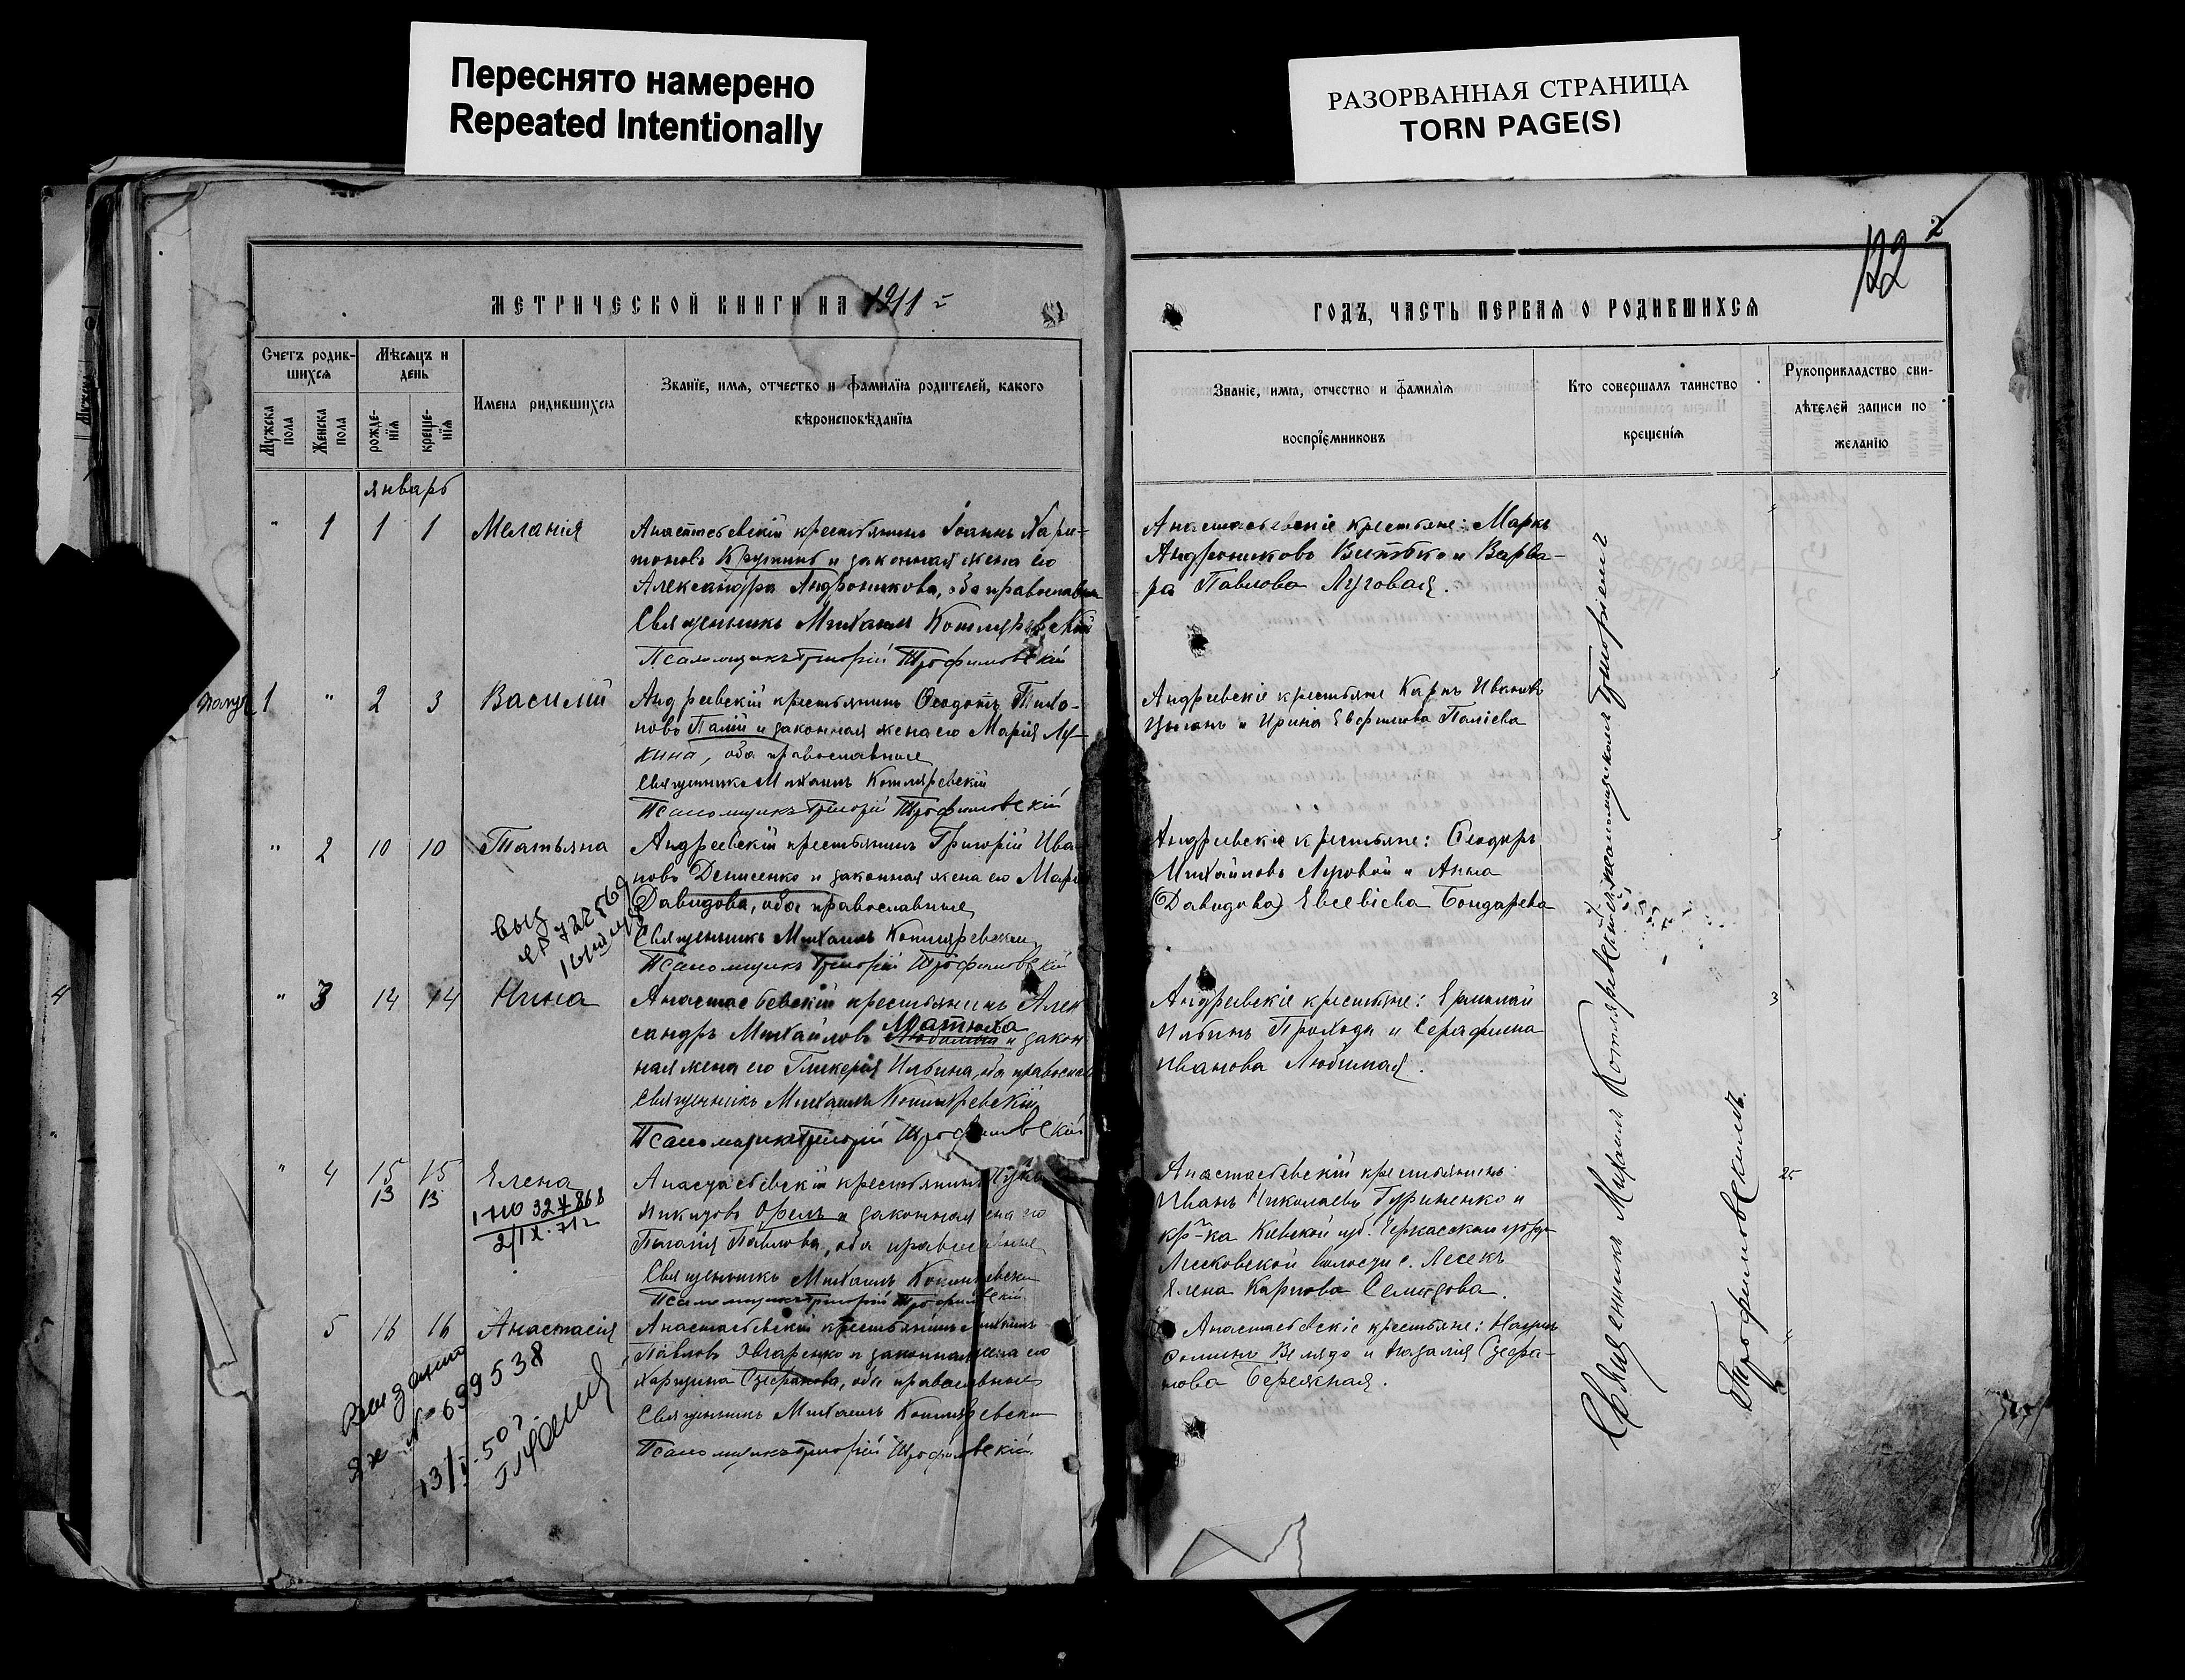 Переснято намерено
Repeated Intentionally
РАЗОРВАННАЯ СТРАНИЦА
TORN PAGE(S)
2
122
МЕТРИЧЕСКОЙ КНИГИ НА 1911
ГОДЪ, ЧАСТЬ ПЕРВАЯ О РОДИВШИХСЯ
Счетъ родив-
шихся
Мѣсяцъ и
день
Мужеска
пола
Женска
пола
рожде-
нія
креще-
нія
Имена родившихся
Званіе, имя, отчество и фамилія родителей, какого
вѣроисповѣданія
Званіе, имя, отчество и фамилія
воспріемниковъ
Кто совершалъ таинство
крещенія
Рукоприкладство сви-
дѣтелей записи по
желанію
январь
" 1 1 1 Меланія
Анастасьевскій крестьянинъ Іоаннъ Хари-
тоновъ и законная жена его
Александра Андроникова, оба православн
Священникъ Михаилъ Котляревскій
Псаломщикъ Григорій Трофимовскій
Анастасьевскіе крестьяне: Маркъ
Андрониковъ Витько и Варва-
ра Павлова Луговая.
1 " 2 3 Василій
Андреевскій крестьянинъ Ѳеодотъ Тихо-
новъ Палій и законная жена его Марія Лу-
кина, оба православные
Священникъ Михаилъ Котляревскій
Псаломщикъ Григорій Трофимовскій
Андреевскіе крестьяне Карпъ Ивановъ
Цыганъ и Ирина Евфимова Паліева
" 2 10 10 Татьяна
Андреевскій крестьянинъ Григорій Ива
новъ Денисенко и законная жена его Мар
Давидова, оба православные
Священникъ Михаилъ Котляревскій
Псаломщикъ Григорій Трофимовскій
Андреевскіе крестьяне: Ѳеодоръ
Михайловъ Луговой и Анна
(Давидова) Евсевіева Бондарева
" 3 14 14 Нина
Анастасьевскій крестьянинъ Алек
сандръ Михайловъ Матюха и закон
ная жена его Гликерія Ильина, оба православ
Священникъ Михаилъ Котляревскій
Псаломщикъ Григорій Трофимовскій
Андреевскіе крестьяне: Ермолай
Ильинъ Проходя и Серафима
Иванова Любимая.
4
" 4 15 15 Елена
13 13
Анастасьевскій крестьянинъ
Орелъ и законная
Пелагія Павлова, оба православные
Священникъ Михаилъ Котляревскій
Псаломщикъ Григорій Трофимовскій
Анастасьевскій крестьянинъ
Иванъ Николаевъ Гуриненко и
кр-ка Кіевской губ. Черкасскаго уѣзда
Лесковской волости с. Лесекъ
Елена Карпова
25
5 16 16 Анастасія
Анастасьевскій крестьянинъ
Павловъ Овчаренко и законная жена его
Харитина Стефанова, оба православные
Священникъ Михаилъ Котляревскій
Псаломщикъ Григорій Трофимовскій
Анастасьевскіе крестьяне:
и Наталія Стефа-
нова Бережная.
№ 699538
Священникъ Михаилъ Котляревскій съ псаломщикомъ Григоріемъ
Трофимовскимъ.